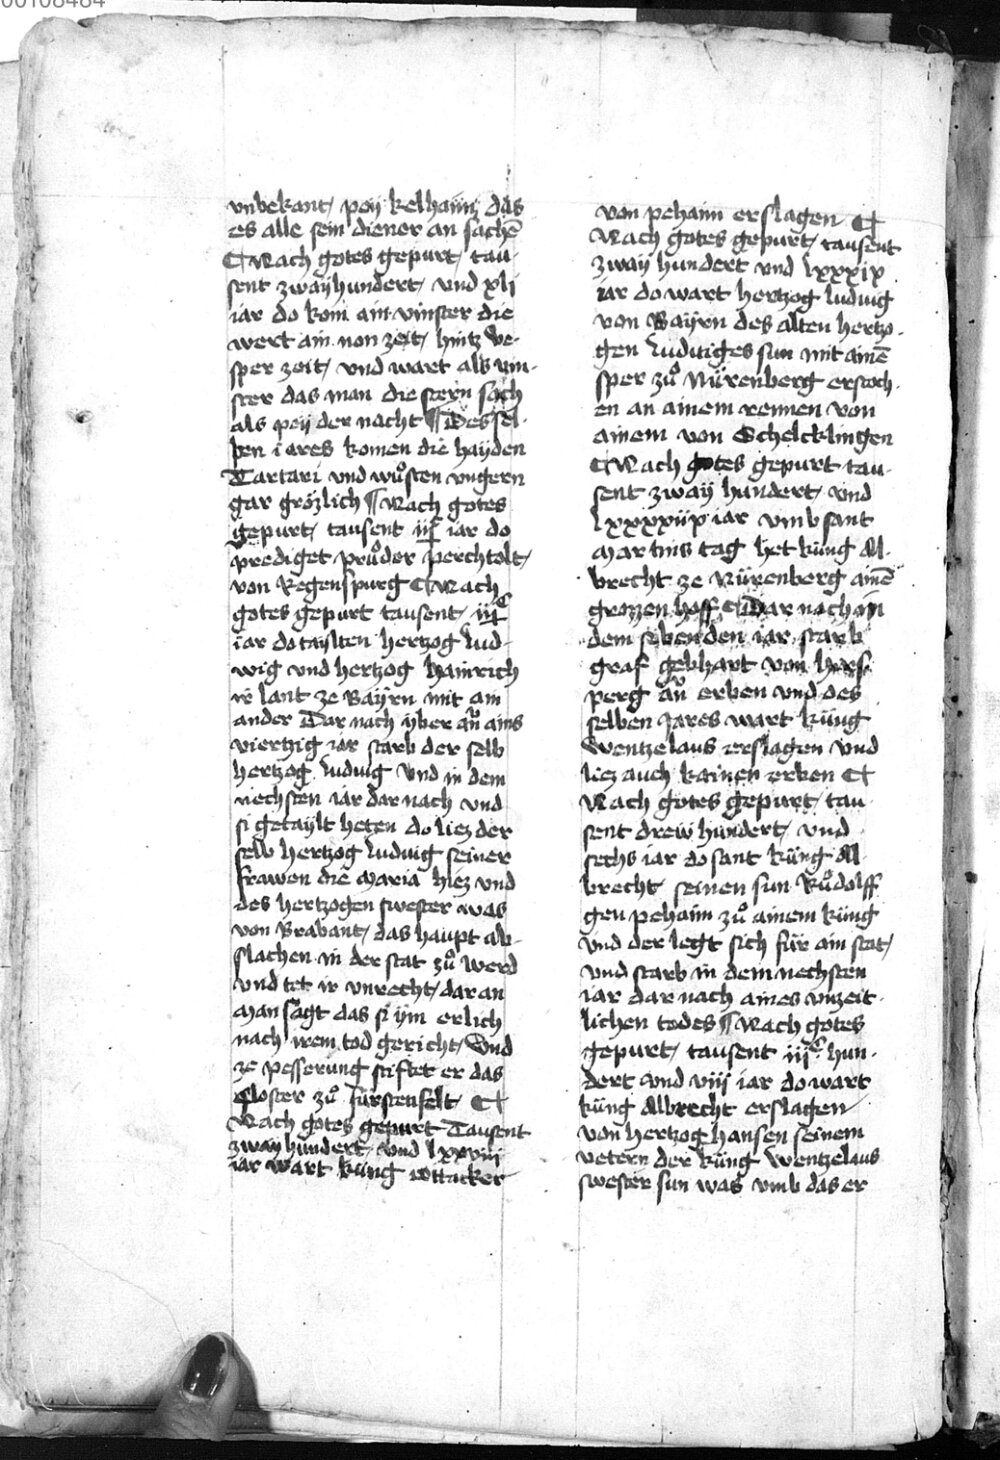 00108484
vnbekant, peÿ kelhaim, das
es alle sein diener an sachē
¶ Nach gotes gepurt, tau-
sent zwaÿhundert, vnd xlj
iar do kom ain vinster die
wert ain non zeit, hintz ve-
sper zeit, vnd wart als vin-
ster das man die stern sach
als peÿ der nacht ¶ Des sel-
ben iares komen die haÿden
Tartari vnd wuͦsten vngern
gar grözlich ¶ Nach gotes
gepurt, tausent iijͨ iar do
prediget pruͦder perchtolt,
von Regenspurg ¶ Nach
gotes gepurt tausent, iijͨ
iar do taÿlten hertzog lud-
wig vnd hertzog hainrich
ir lant ze Baÿrn mit ain
ander Dar nach ÿber an ains
viertzig iar starb der selb
hertzog ludwig vnd in dem
nechsten iar dar nach vnd
si getaÿlt heten do liez der
selb hertzog ludwig seiner
frawen die Maria hiez vnd
des hertzogen swester was
von Brabant, das haupt ab-
slachen in der stat zuͦ werd
vnd tet ir vnrecht, dar an
Man sagt das si ÿm erlich
nach irem tod gericht, Und
ze pesserung stiftet er das
Closter zuͦ fürstenfelt, ¶
Nach gotes gepurt Tausent
zwaÿ hundert, vnd lxxviij
iar wart küng ottacker
von pehaim erslagen ¶
Nach gotes gepurt, tausent
zwaÿ hundert vnd lxxxix
iar do wart hertzog ludwig
von Baÿrn des alten hertzo-
gen ludwiges sun mit ainē
sper zuͦ Nürenberg erstoch-
en an ainem rennen von
ainem von Schelcklingen
¶ Nach gotes gepurt tau-
sent zwaÿ hundert, vnd
lxxxxiix iar vmb sant
Martins tag het küng Al-
brecht ze Nürenberg ainē
grozzen hoff ¶ Dar nach in
dem sibenden iar starb
graf gebhart von hirs-
perg an erben vnd des
selben Jares wart küng
Wentzelaus erslagen vnd
liez auch kainen erben ¶
Nach gotes gepurt, tau-
sent dreẅ hundert, vnd
sechs iar do sant küng Al-
brecht, seinen sun Ruͦdolff
gen pehaim zuͦ ainem küng
vnd der legt sich für ain stat,
vnd starb in dem nechsten
iar dar nach aines vnzeit-
lichen todes ¶ Nach gotes
gepurt, tausent iijͨ hun-
dert vnd viij iar do wart
küng Albrecht erslagen
von hertzog hansen seinem
vetern der küng Wentzelaus
swester sun was vmb das er